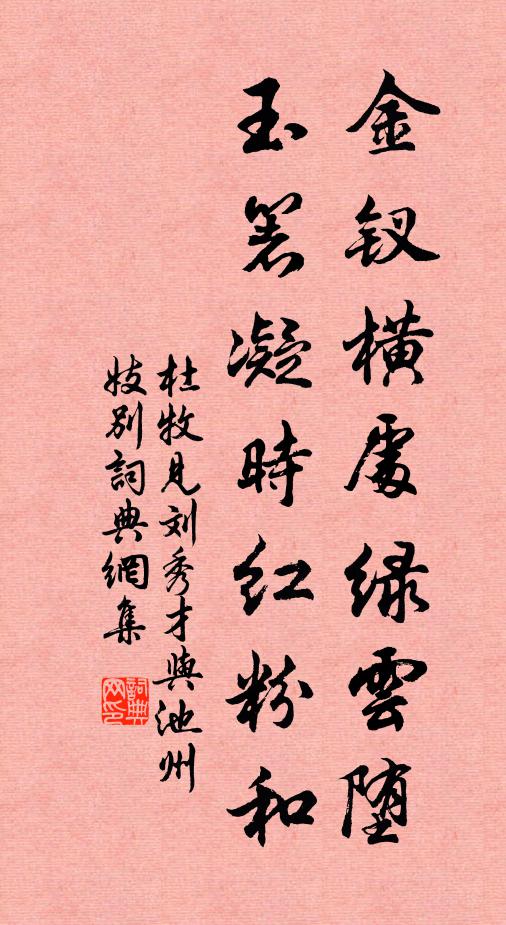 金钗横處绿雲堕
玉箸凝時红粉和
杜牧見刘秀才與池州
妓别詞典網集
詞典
网印